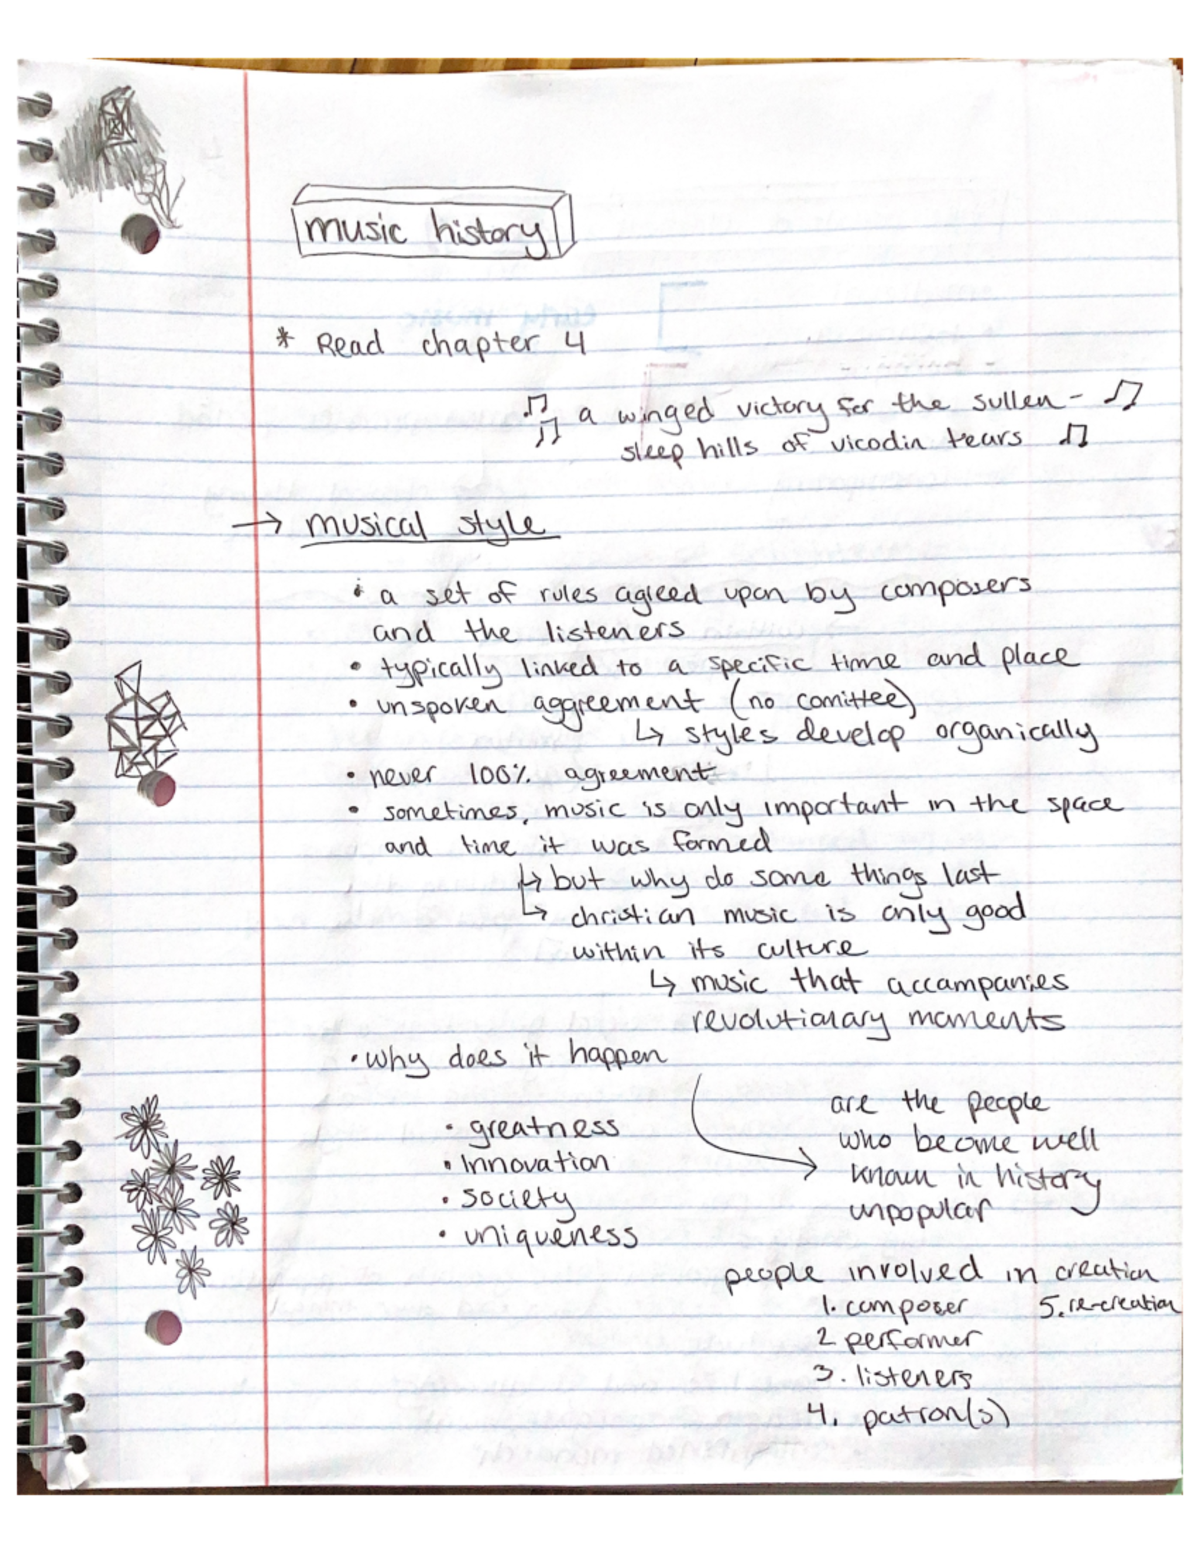 music history
* Read chapter 4
♫ a winged victory for the sullen - ♫
♫ sleep hills of vicodin tears ♫
→ musical style
• a set of rules agreed upon by composers
and the listeners
• typically linked to a specific time and place
• unspoken aggreement (no comittee)
↳ styles develop organically
• never 100% agreement
• sometimes, music is only important in the space
and time it was formed
↳ but why do some things last
↳ christian music is only good
within its culture
↳ music that accampanies
revolutionary moments
• why does it happen
• greatness
• innovation
• society
• uniqueness
→ are the people
who become well
known in history
unpopular
people involved in creation
1. composer 5. re-creation
2 performer
3. listeners
4. patron(s)